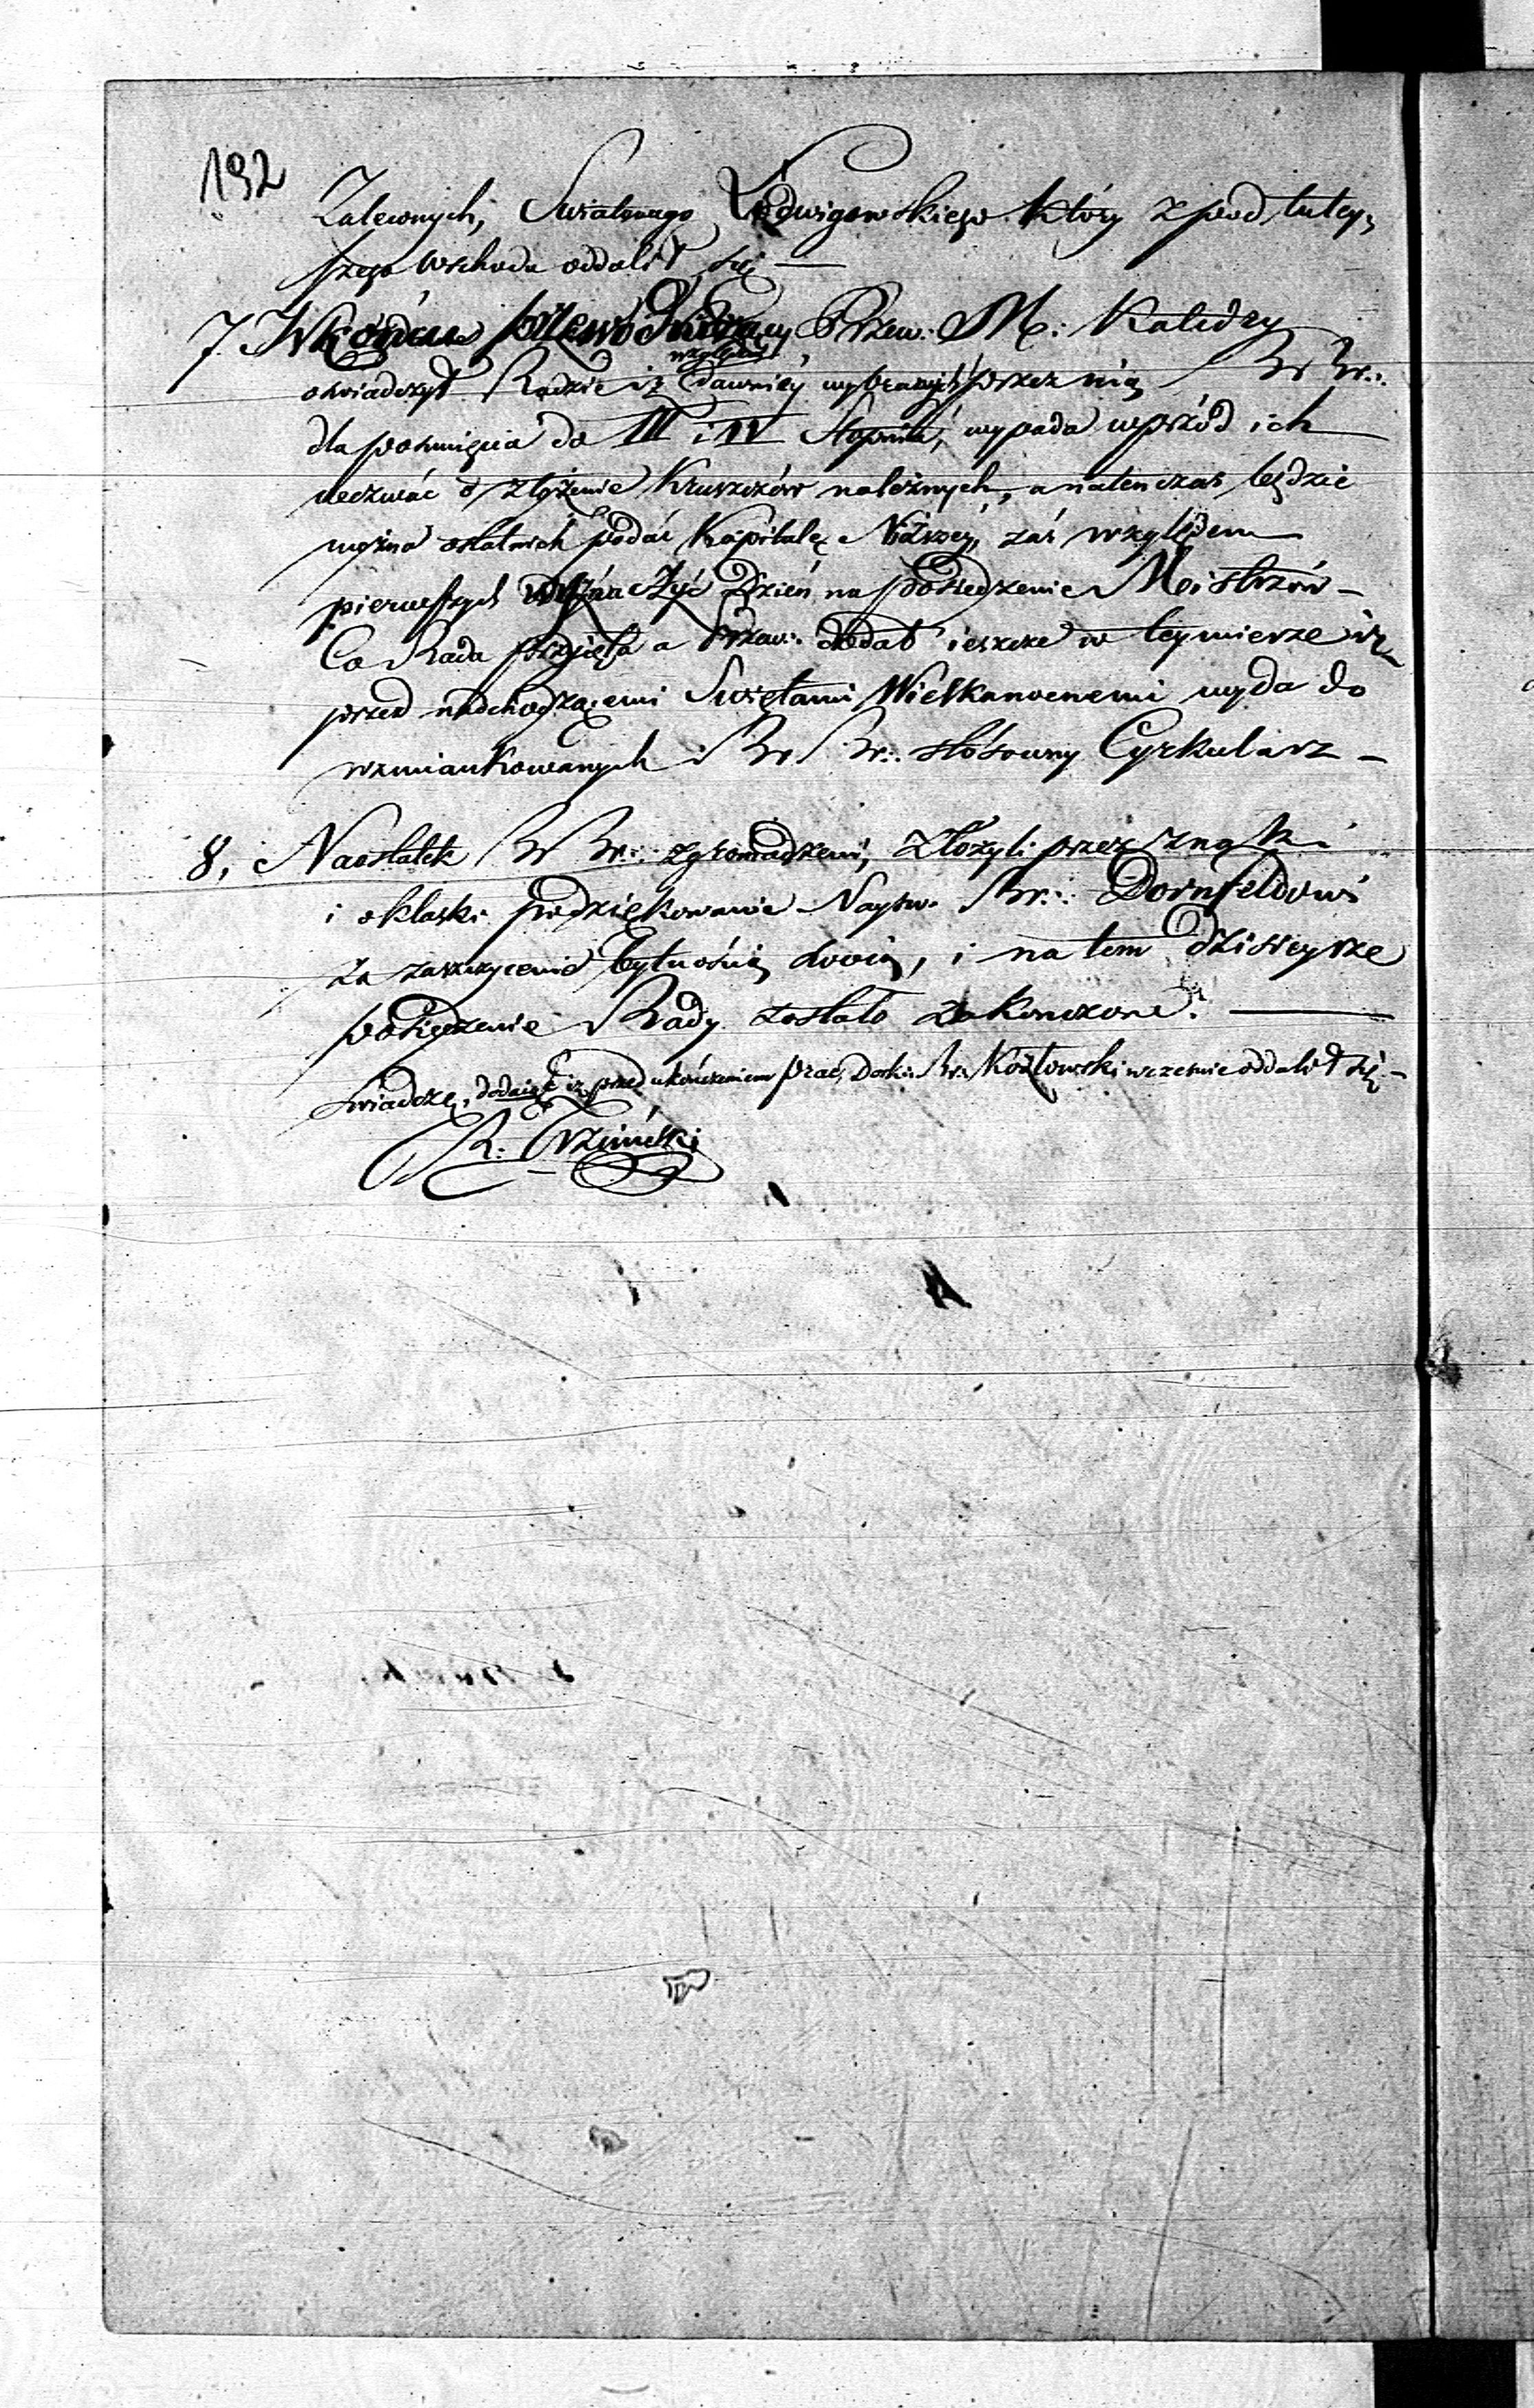 192
Zaleconych, Swiatowego Ludwigowskiego który z pod tutey,
szego wschodu oddalił się —
7. W końcu Przewodniczący Przew: M: Katedry
względem
oswiadczył Radzie iż dawniéy wybranych przez nią BrBr::
dla posunięcia do III i IV Stopnia, wypada wprzód ich
wezwać o złożenie Kruszczów należnych, a natenczas będzie
można ostatnich podać Kapitule Niższey, zaś względem
pierwszych wyznaczyć dzień na posiedzenie Maistrzów —
Co Rada przyięła a Przew: dodał ieszcze w teymierze iż
przed nadchodzącemi Swiętami Wielkanocnemi wyda do
wzmiankowanych BrBr:: stósowny Cyrkularz —
8, Naostatek BrBr:: zgromadzeni, złożyli przez znaki
i oklaski podziękowanie Nayw. Br:: Dornfeldowi
za zaszczycenie bytnością swoią, i na tem dzisieysze
posiedzenie Rady zostało zakończone. —
Swiadczę, dodaiąc iż przed ukończeniem prac, Dosk: Br: Kozłowski wcześnie oddalił się —
R: